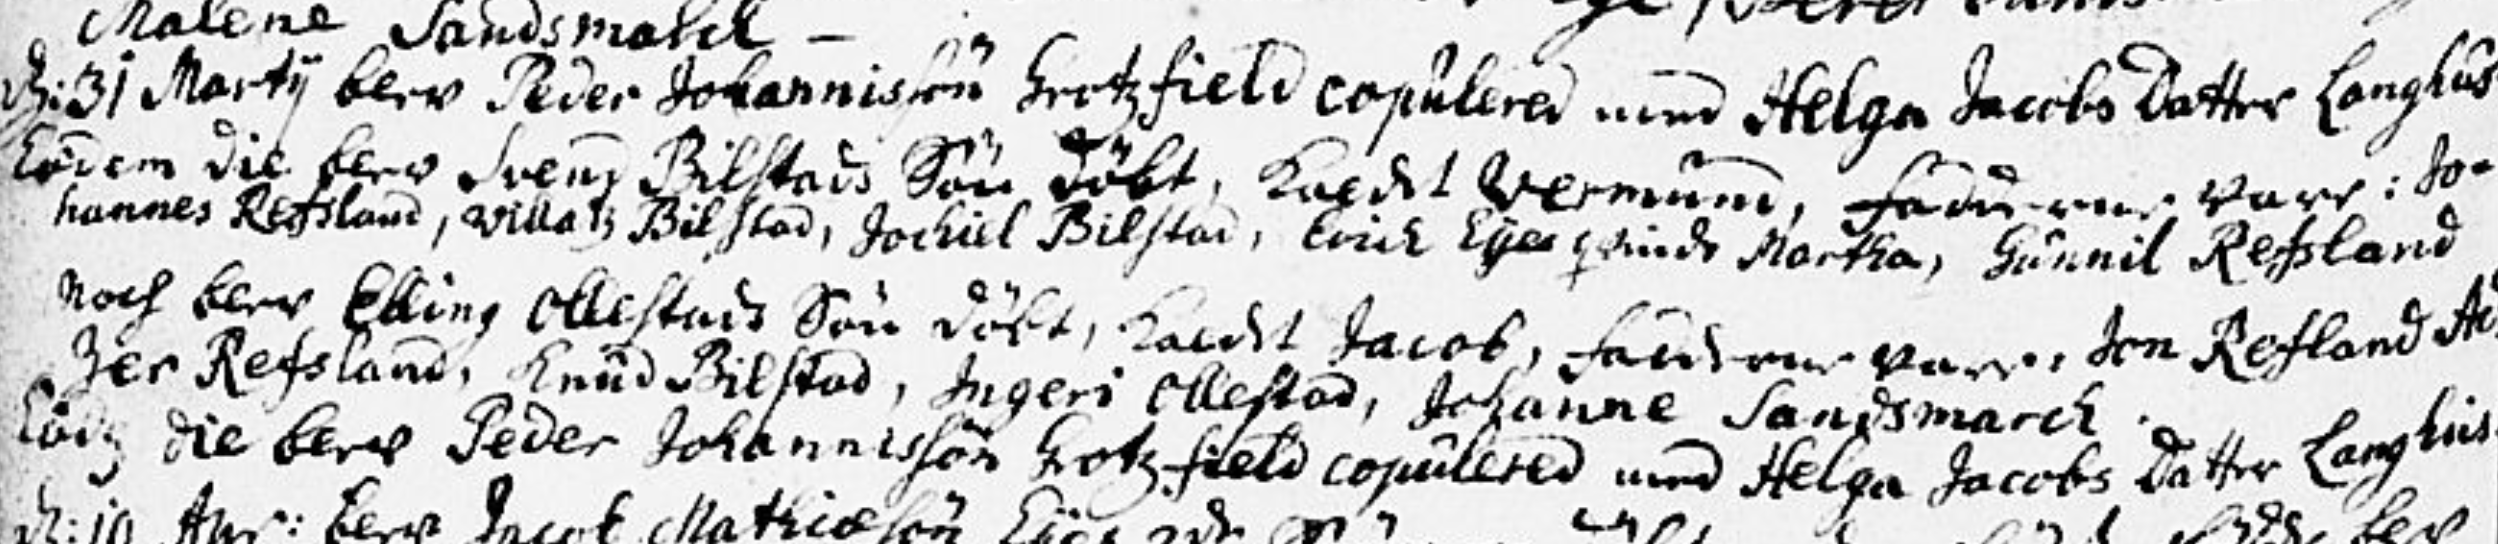 Malene Sandsmarck –
d: 31 Martij blev Peder Johannissön Grotzfield copulered med Helga Jacobs Datter Langhus
Eodem die blev Svend Bilstads Sön döbt, kaldet Vermund, Fadderne vare: Jo-
hannes Refsland, Villatz Bilstad, Jochiel Bilstad, Erick Eyes qvinde Martha, Gunnil Refsland
Noch blev Elling Ollestads Sön döbt, kaldet Jacob, Fadderne vare, Jon Refsland
Refsland, Knud Bilstad, Ingeri Ollestad, Johanne Sandsmarck.
Eod die blev Peder Johannissön Grotzfield copulered med Helga Jacobs Datter Langhus.
d: 10 Apr: blev Jacob Mathiæsön